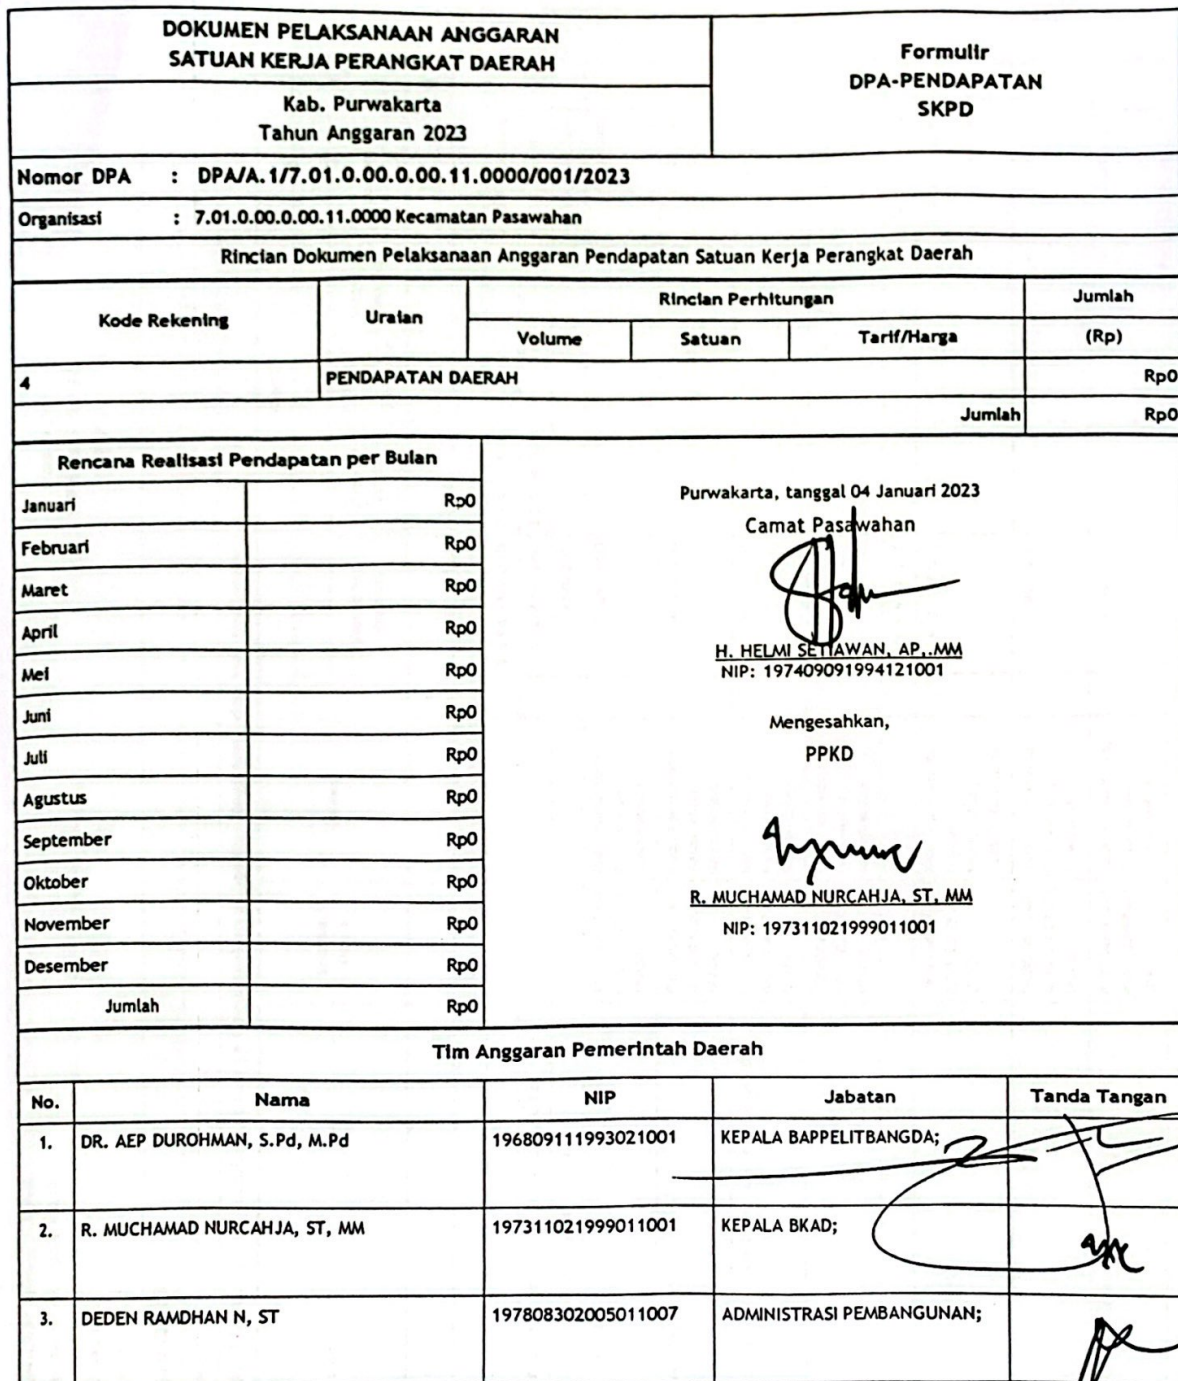 DOKUMEN PELAKSANAAN ANGGARAN
SATUAN KERJA PERANGKAT DAERAH
Formulir
DPA-PENDAPATAN
SKPD
Kab. Purwakarta
Tahun Anggaran 2023
Nomor DPA : DPA/A.1/7.01.0.00.0.00.11.0000/001/2023
Organisasi : 7.01.0.00.0.00.11.0000 Kecamatan Pasawahan
Rincian Dokumen Pelaksanaan Anggaran Pendapatan Satuan Kerja Perangkat Daerah
Kode Rekening Uraian Rincian Perhitungan Jumlah
Volume Satuan Tarif/Harga (Rp)
4 PENDAPATAN DAERAH Rp0
Jumlah Rp0
Rencana Realisasi Pendapatan per Bulan
Januari Rp0
Februari Rp0
Maret Rp0
April Rp0
Mei Rp0
Juni Rp0
Juli Rp0
Agustus Rp0
September Rp0
Oktober Rp0
November Rp0
Desember Rp0
Jumlah Rp0
Purwakarta, tanggal 04 Januari 2023
Camat Pasawahan
H. HELMI SETIAWAN, AP,.MM
NIP: 197409091994121001
Mengesahkan,
PPKD
R. MUCHAMAD NURCAHJA, ST, MM
NIP: 197311021999011001
Tim Anggaran Pemerintah Daerah
No. Nama NIP Jabatan Tanda Tangan
1. DR. AEP DUROHMAN, S.Pd, M.Pd 196809111993021001 KEPALA BAPPELITBANGDA;
2. R. MUCHAMAD NURCAHJA, ST, MM 197311021999011001 KEPALA BKAD;
3. DEDEN RAMDHAN N, ST 197808302005011007 ADMINISTRASI PEMBANGUNAN;